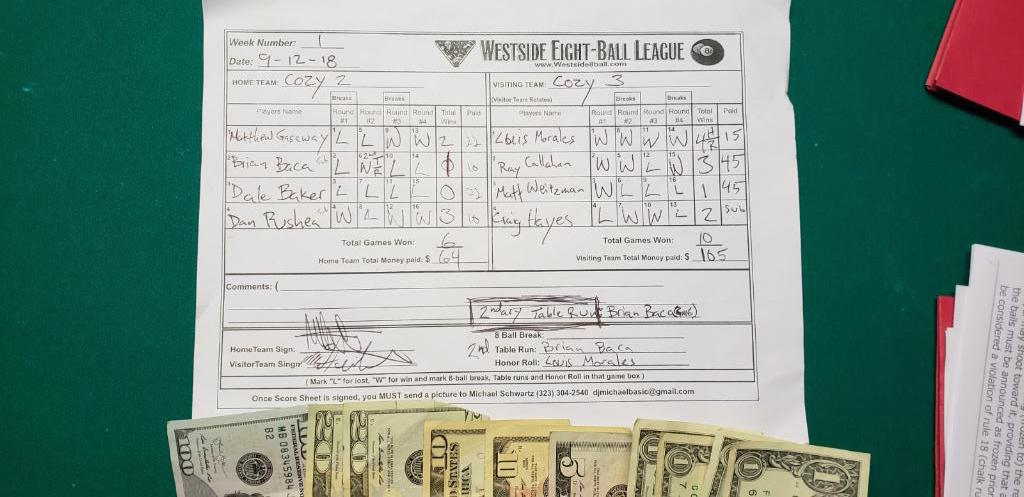 Week Number: 1
Date: 9-12-18
WESTSIDE EIGHT-BALL LEAGUE 8
www.Westside8ball.com
HOME TEAM: Cozy 2
VISITING TEAM: Cozy 3
(Visitor Team Rotates)
Breaks Breaks Breaks Breaks
Players Name Round #1 Round #2 Round #3 Round #4 Total Wins Paid
Players Name Round #1 Round #2 Round #3 Round #4 Total Wins Paid
Matthew Gasaway L L W W 2 22
1 Louis Morales W W W W 4 HR 15
2 Brian Baca Sub L W L L 10
2 Ray Callahan W W L W 3 45
3 Dale Baker L L L L 0 22
3 Matt Weitzman W L L L 1 45
4 Dan Rushea Sub W L W W 3 10
4 Craig Hayes L W W L 2 Sub
Total Games Won: 6
Total Games Won: 10
Home Team Total Money paid: $ 64
Visiting Team Total Money paid: $ 105
Comments: (
2ndary Table Run Brian Baca (Sub)
8 Ball Break:
HomeTeam Sign:
2nd Table Run: Brian Baca
VisitorTeam Singn:
Honor Roll: Louis Morales
( Mark "L" for lost, "W" for win and mark 8-ball break, Table runs and Honor Roll in that game box )
Once Score Sheet is signed, you MUST send a picture to Michael Schwartz (323) 304-2540 djmichaelbasic@gmail.com
100
MB 08345984
B2
20
20
10
10
5
1
1
1
1
shoot toward it, providing that
the balls must be announced as frozen prior
be considered a violation of rule 18 (chalk